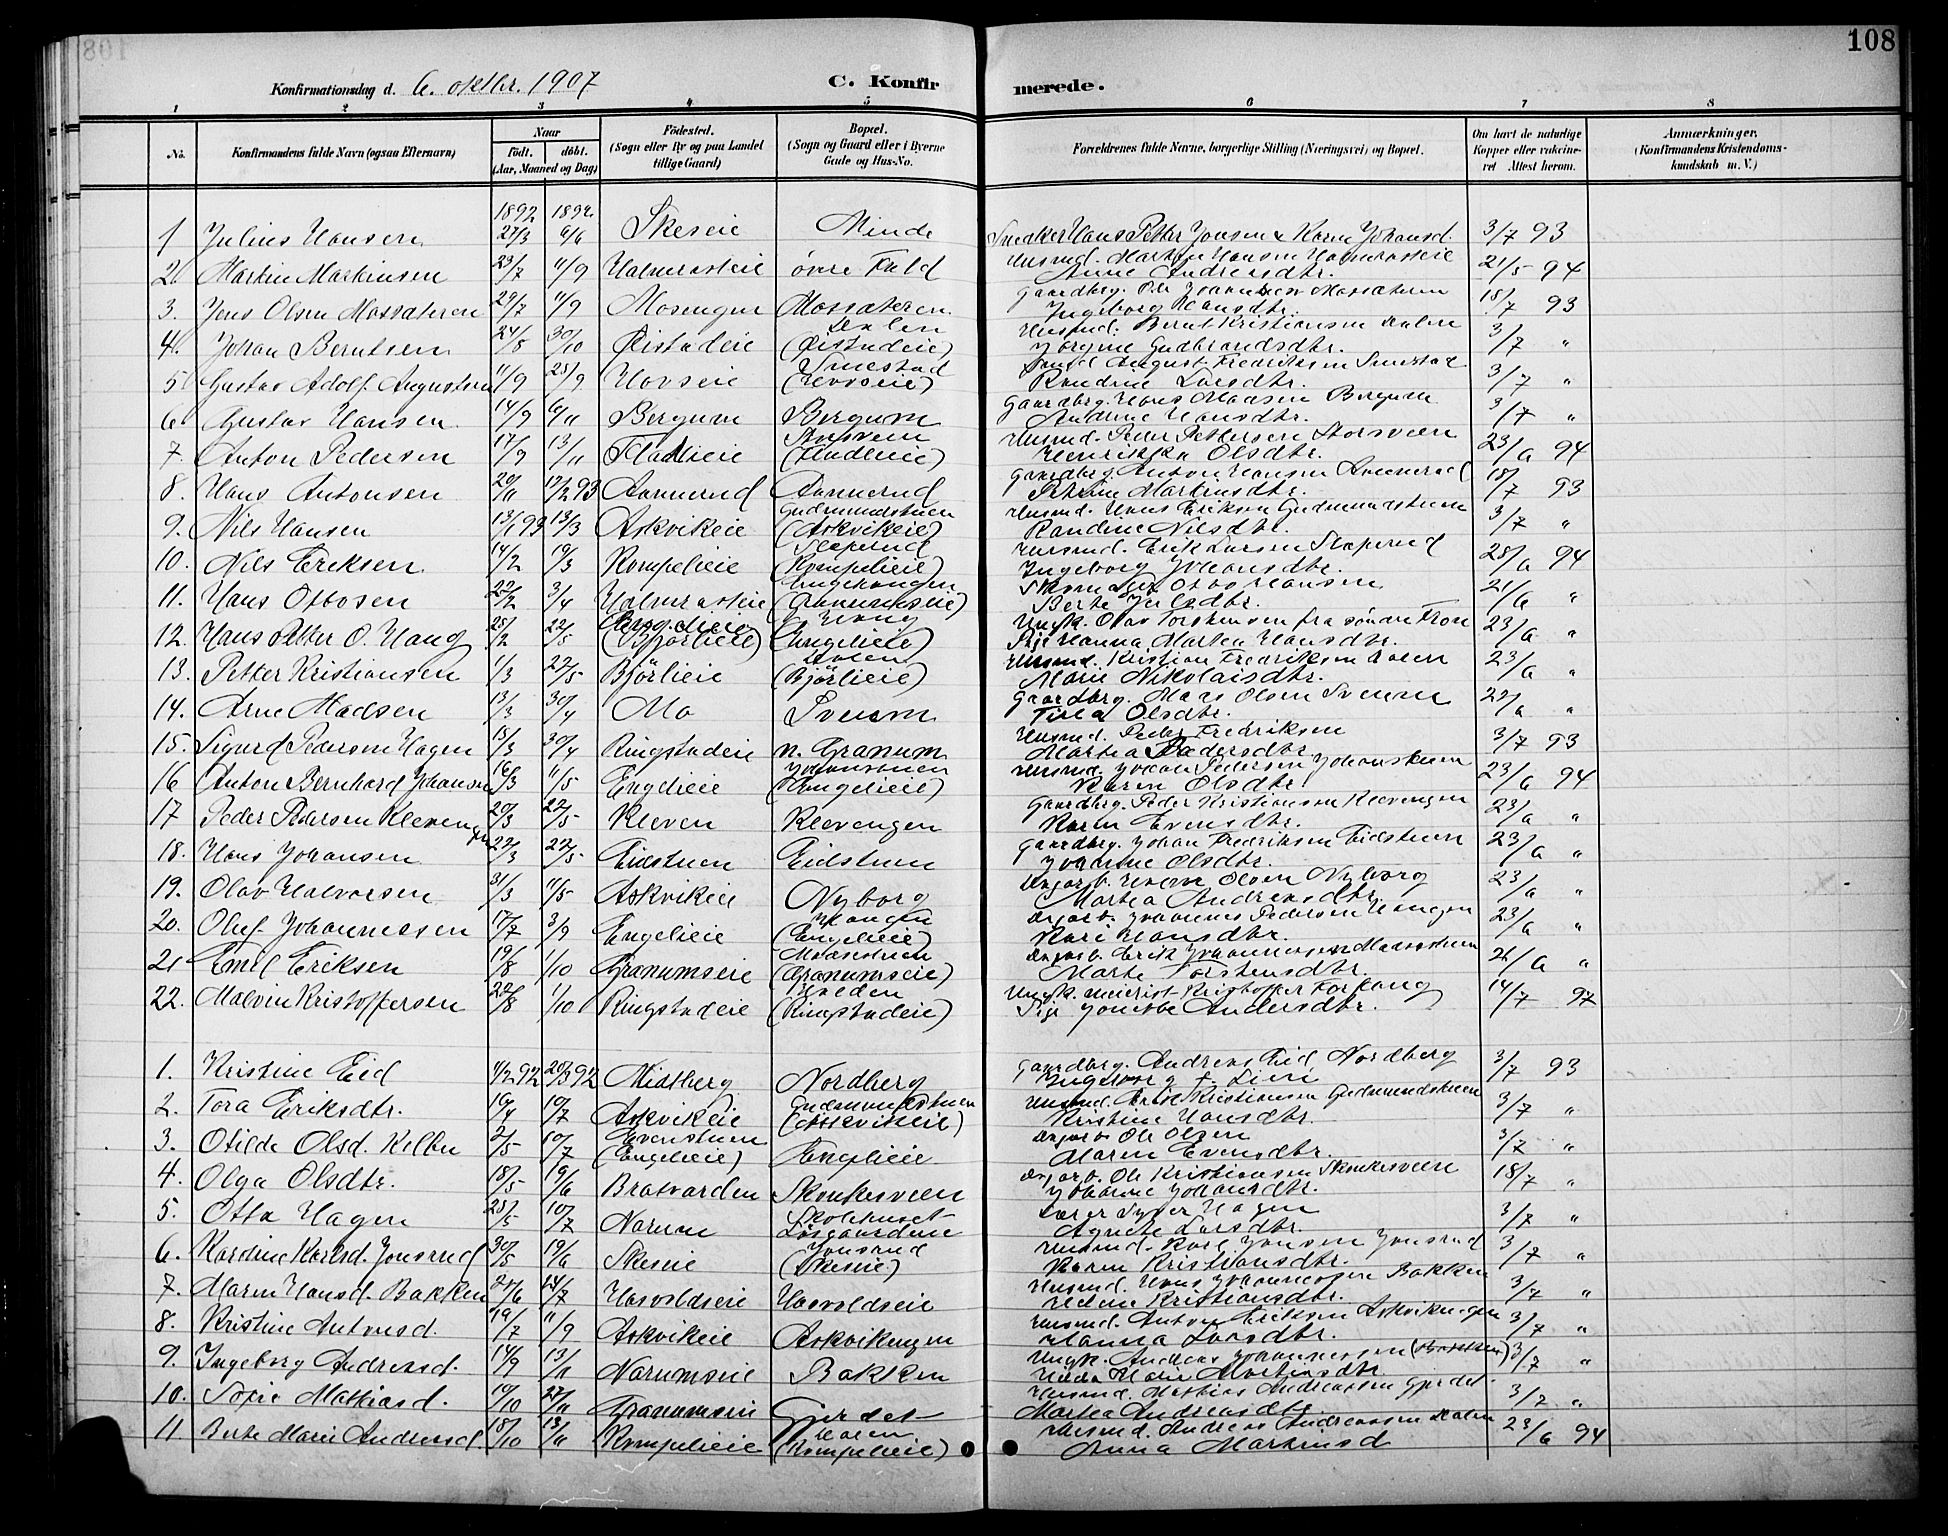 108
Konfirmationsdag d. 6. oktbr. 1907
C. Konfirmerede.
1 2 3 4 5 6 7 8
No. Konfirmandens fulde Navn (ogsaa Efternavn) Naar født. døbt. (Aar, Maaned og Dag) Födested. (Sogn eller By og paa Landet tillige Gaard) Bopæl. (Sogn og Gaard eller i Byerne Gade og Hus-No. Forældrenes fulde Navne, borgerlige Stilling (Næringsvei) og Bopæl. Om havt de naturlige Kopper eller vaccineret Attest herom. Anmærkninger. (Konfirmandens Kristendomskundskab m. V.)
1892 1892
1 Julius Hansen 27/3 6/6 Skeseie Minde Snedker Hans Petter Jonsen & Karen Johansd. 3/7 93
2. Martin Martinsen 23/7 11/9 øvre Fald Husmd. Martin Hansen Anne Andreasdtr. 21/5 94
3. Jens Olsen 29/7 11/9 Gaardbrg. Ole Johannesen Ingeborg Hansdtr. 18/7 93
4. Johan Berntsen 24/8 30/10 Øistadeie Dalen (Øistadeie) Husmd. Bernt Kristiansen Dalen Jørgine Gudbrandsdtr. 3/7 "
5 Gustav Adolf Augustsen 11/9 25/9 Hovseie Smestad (Hovseie) August Fredriksen Smestad Randine Larsdtr. 3/7 "
6 Gustav Hansen 14/9 6/11 Bergum Bergum Gaardbrg. Hans Madsen Bergum Andrine Hansdtr. 3/7 "
7. Anton Pedersen 17/9 13/11 Fladlieie (Fladlieie) Husmd. Peder Pettersen Storsveen Henrikka Olsdtr. 23/6 94
8. Hans Antonsen 20/11 12/2 93 Aannerud Aannerud Gaardbrg. Anton Hansen Aannerud Petrine Martinsdtr. 18/7 93
9. Nils Hansen 13/1 93 13/3 Askvikeie Gudmundstuen (Askvikeie) Husmd. Hans Eriksen Gudmundstuen Randine Nilsdtr. 3/7 "
10. Nils Eriksen 14/2 19/3 Rompelieie Slaperud (Rompelieie) Husmd. Erik Larsen Slaperud Ingeborg Johansdtr. 28/6 94
11. Hans Ottosen 22/2 3/4 Otto Hansen Berte 21/6 "
12. Hans Petter O. Haug 25/2 22/5 (Bjørlieie) Haug (Engelieie) Ungk. Olav Torstensen fra søndre Fron Pige Hanna Martea Hansdtr. 23/6 "
13. Petter Kristiansen 1/3 22/5 Bjørlieie Dalen (Bjørlieie) Husmd. Kristian Fredriksen Dalen Marie Nikolaisdtr. 23/6 "
14. Arne Madsen 13/3 30/4 Mo Svenum Gaardbrg. Mads Olsen Svenum Olsdtr. 22/6 "
15. Sigurd Pedersen Hagen 15/3 30/4 Ringstadeie n. Granum Husmd. Peder Fredriksen Martea Pedersdtr. 3/7 93
16 Anton Bernhard Johansen 16/3 11/5 Engelieie Johanstuen (Engelieie) Husmd. Johan Pedersen Johanstuen Karen Olsdtr. 23/6 94
17 Peder Pedersen Klevengen 20/3 22/5 Kleven Klevengen Gaardbrg. Peder Kristiansen Klevengen Karen Evensdtr. 23/6 "
18. Hans Johansen 22/3 22/5 Eidstuen Eidstuen Gaardbrg. Johan Fredriksen Eidstuen Johanne Olsdtr. 23/6 "
19. Olav Halvorsen 31/3 11/5 Askvikeie Nyborg Olsen Nyborg Martea Andreasdtr. 23/6 "
20. Oluf Johannessen 17/7 3/9 Engelieie Haugen (Engelieie) Johannes Pedersen Haugen Kari Hansdtr. 23/6 "
21 Emil Eriksen 19/8 1/10 Granumseie (Granumseie) Erik Johannessen Marte Torstensdtr. 21/6 "
22. Malvin Kristoffersen 22/8 1/10 Ringstadeie (Ringstadeie) Ungk. meierist Kristoffer Forfang Pige Andersdtr. 14/7 97
1. Kristine Eid 4/2 92 20/3 92 Midtberg Nordberg Gaardbrg. Andreas Eid Nordberg Ingeborg f. Lien 3/7 93
2. Tora Eriksdtr. 19/4 10/7 Askvikeie Gudmundstuen (Askvikeie) Husmd. Erik Kristiansen Gudmundstuen Kristine Hansdtr. 3/7 "
3. Otilde Olsd. 2/5 10/7 Evenstuen (Engelieie) Engelieie Dagarb. Ole Olsen Maren Evensdtr. 3/7 "
4. Olga Olsdtr. 18/5 19/6 Bratvarden Skonkesveen Dagarb. Ole Kristiansen Skonkesveen Johanne Johansdtr. 18/7 "
5. Otta Hagen 25/5 10/7 Narum Skolehuset Lisgaardene Lærer Syver Hagen Agnete Larsdtr. 3/7 "
6. Kardine Karlsd. Jonsrud 30/5 19/6 Skeseie Jonsrud (Skeseie) Husmd. Karl Jonsen Jonsrud Karen Kristiansdtr. 3/7 "
7. Maren Hansd. Bakken 24/6 24/7 Hasvoldseie Hasvoldseie Husmd. Hans Johannessen Bakken Helene Kristiansdtr. 3/7 "
8. Kristine Antonsd. 19/7 11/9 Askvikeie Askvikengen Husmd. Anton Eriksen Askvikengen Hanna Larsdtr. 3/7 "
9. Ingeborg Andreasd. 14/9 13/11 Narumseie Bakken Ungk. Andreas Johannessen (Bakken) Hilda Marie Martinsdtr. 3/7 "
10. Sofie Mathiasd. 10/10 27/11 Granumseie Gjerdet Husmd. Mathias Andreassen Gjerdet Martea Andreasdtr. 3/7 "
11 Berte Marie Andreasd. 18/10 13/11 Rompelieie Dalen (Rompelieie) Husmd. Andreas Andreassen Dalen Anna Martinsd 23/6 94